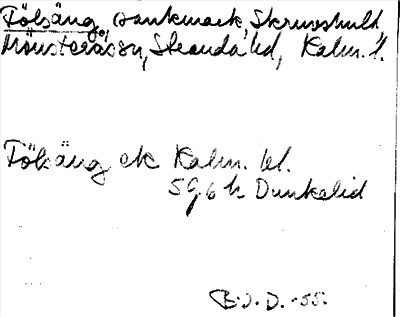 Fölsäng, sankmark, Skruvshult,
Mönsterås sn, Stranda hd, Kalm. l.
Fölsäng ek Kalm. bl.
5 9 6 h Dunkelid
B.J.D. -55.